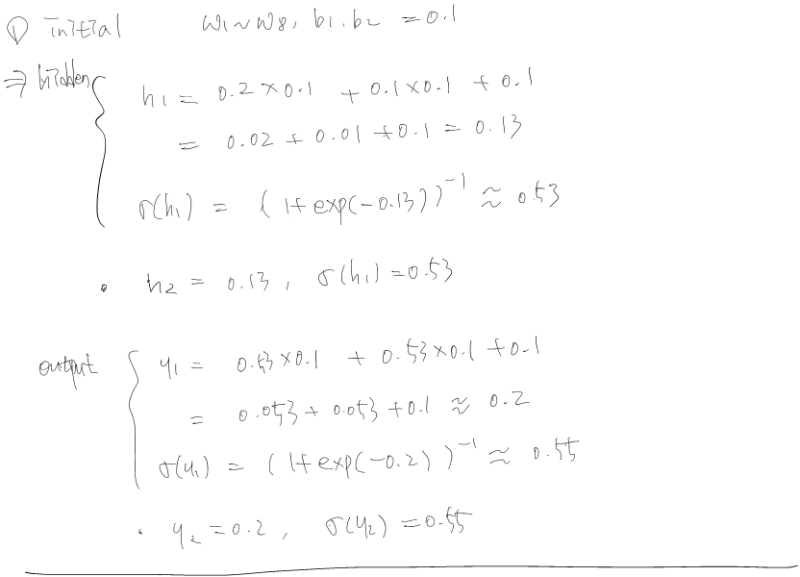 ① initial w1~w8, b1. b2 = 0.1
⇒ hidden
h1 = 0.2×0.1 + 0.1×0.1 + 0.1
= 0.02 + 0.01 + 0.1 = 0.13
σ(h1) = (1+exp(-0.13))^-1 ≈ 0.53
• h2 = 0.13, σ(h1) = 0.53
output y1 = 0.53×0.1 + 0.53×0.1 + 0.1
= 0.053 + 0.053 + 0.1 ≈ 0.2
σ(y1) = (1+exp(-0.2))^-1 ≈ 0.55
• y2 = 0.2, σ(y2) = 0.55